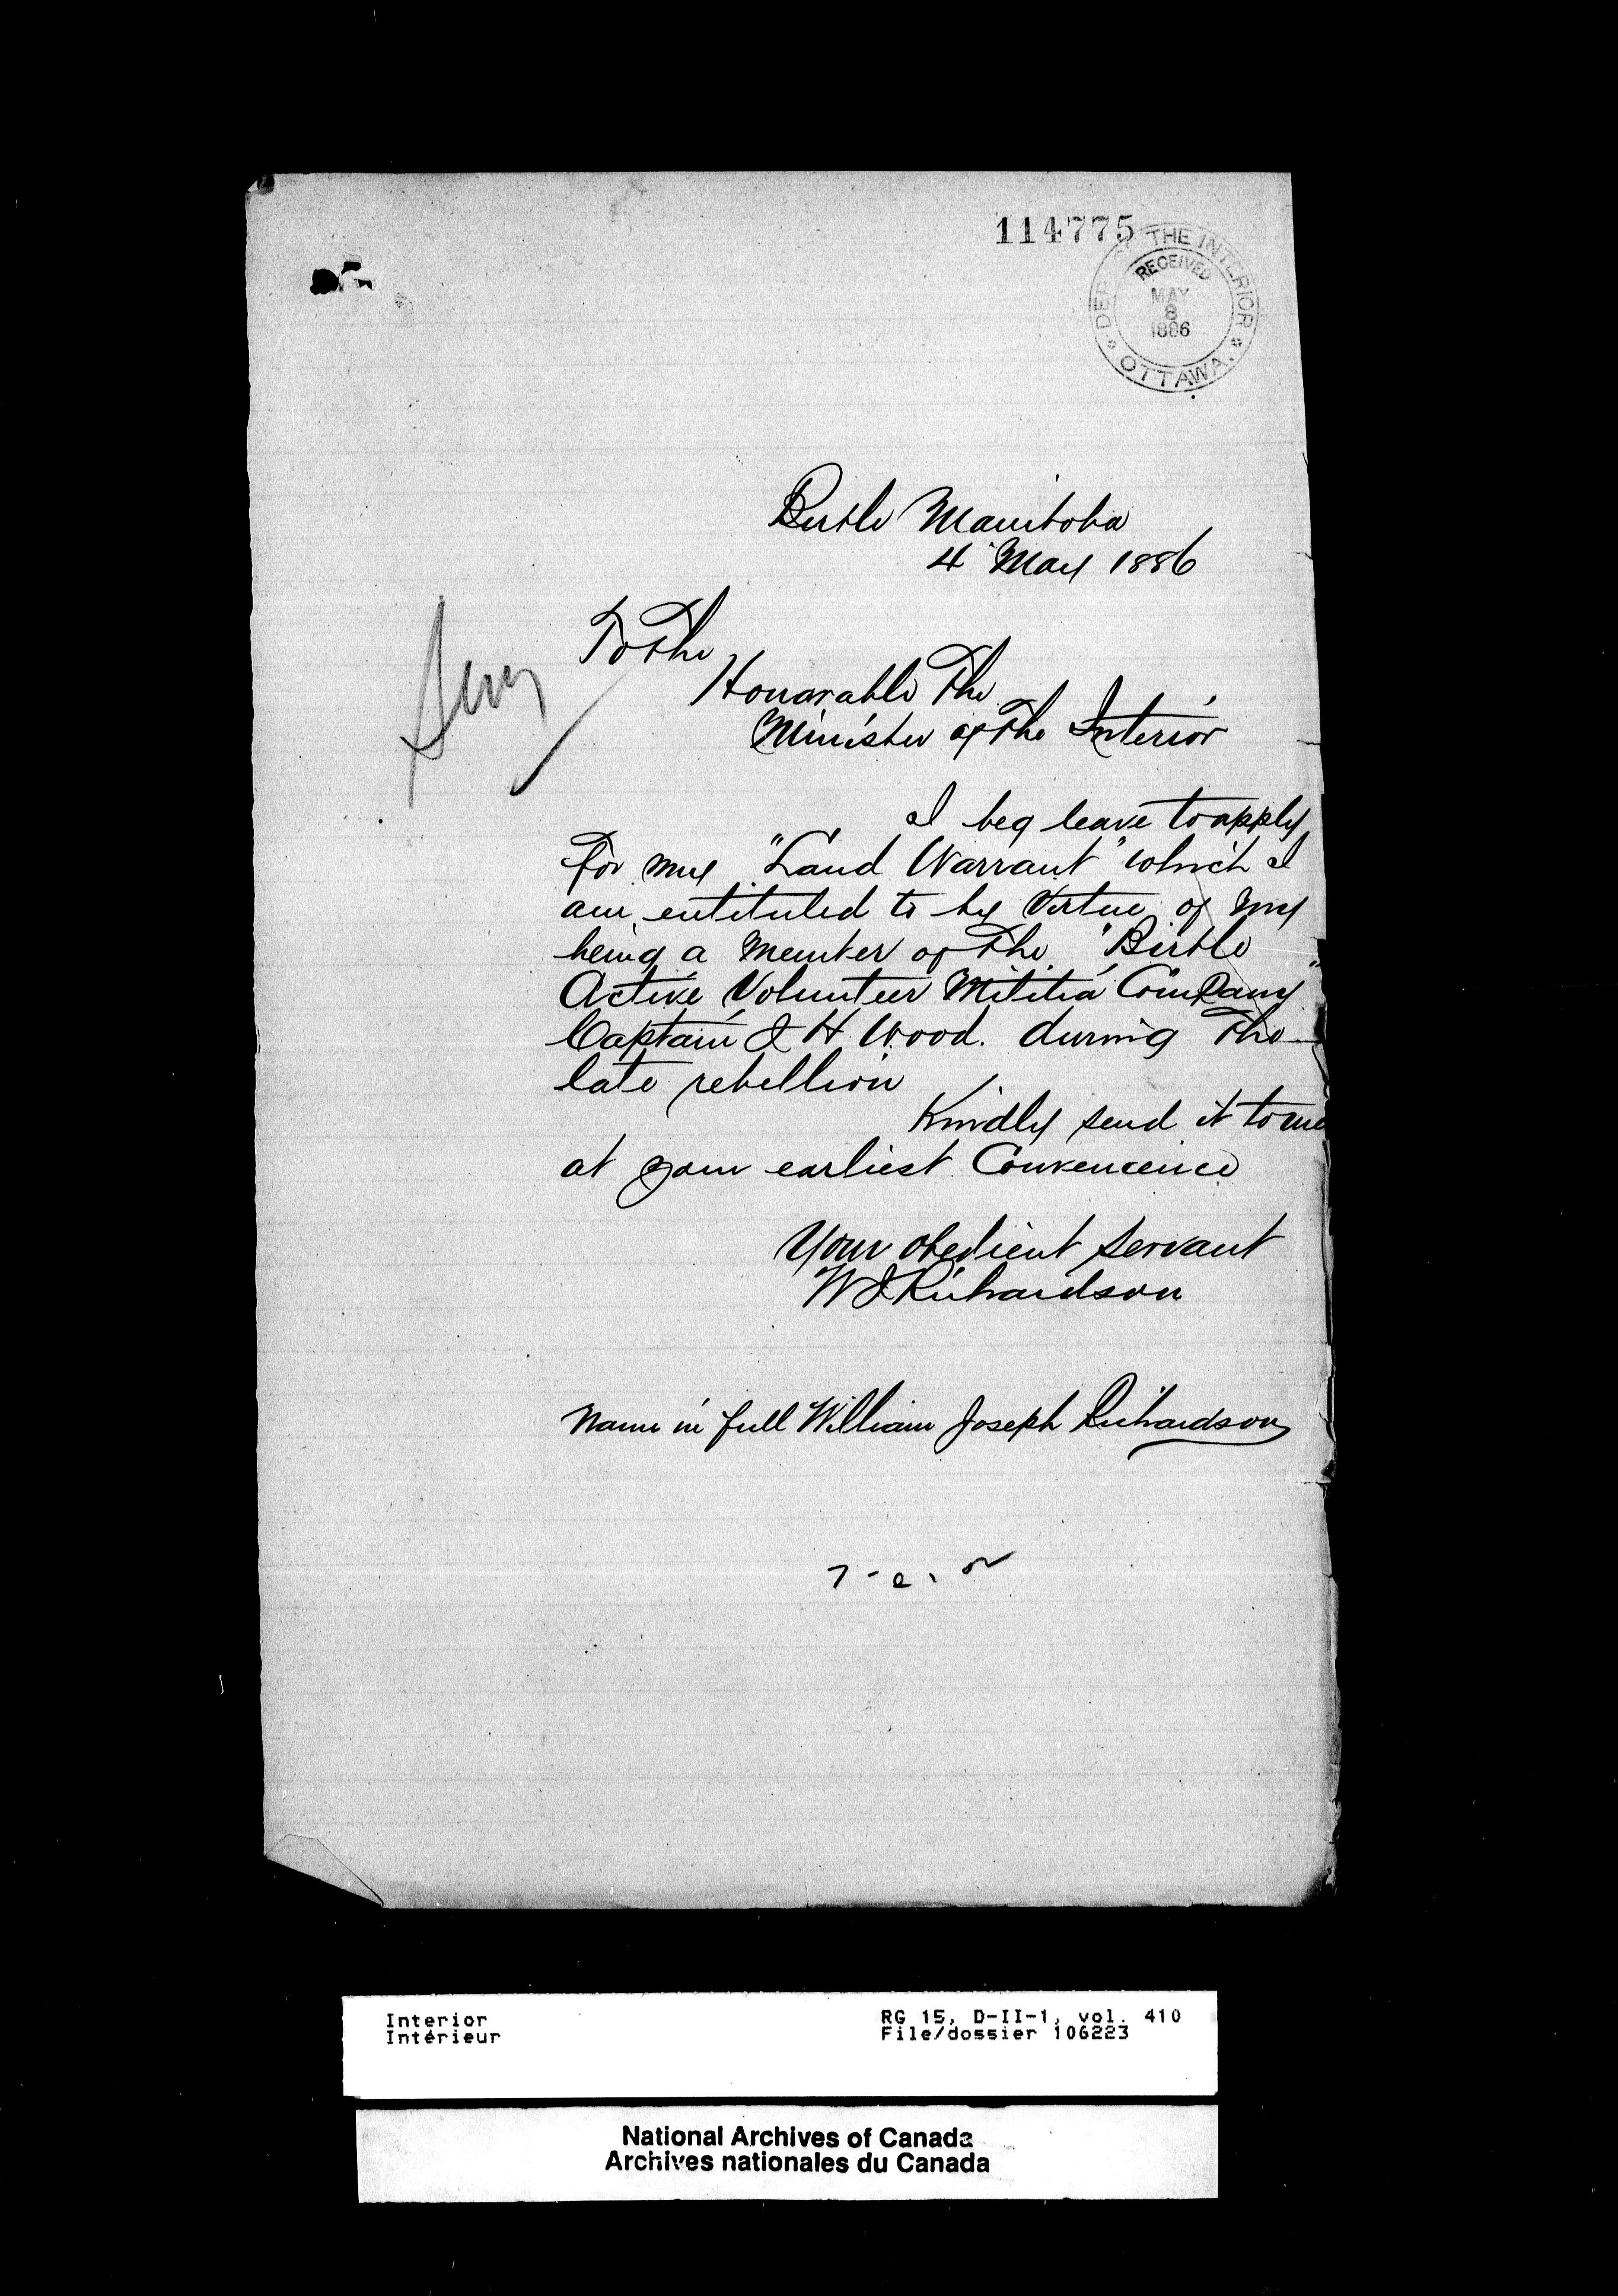 114775
DEP OF THE INTERIOR
RECEIVED
MAY
8
1886
OTTAWA.
Birtle Manitoba
4 May 1886
To The
Honarable The
Minister of The Interior
I beg leave to apply
for my "Land Warrant" which I
am entituled to by Virtue of my
being a member of The "Birtle
Active Volunteer Militia Company"
Captain J H Wood. during The
late rebellion
Kindly send it to me
at your earliest Convenience
Your obedient servant
W J Richardson
Name in full William Joseph Richardson
Interior
Intérieur
RG 15, D-II-1, vol. 410
File/dossier 106223
National Archives of Canada
Archives nationales du Canada